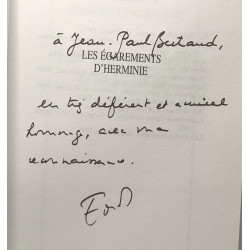 à Jean-Paul Bertrand,
LES ÉGAREMENTS
D'HERMINIE
en très déférent et amical
hommage, avec ma
reconnaissance.